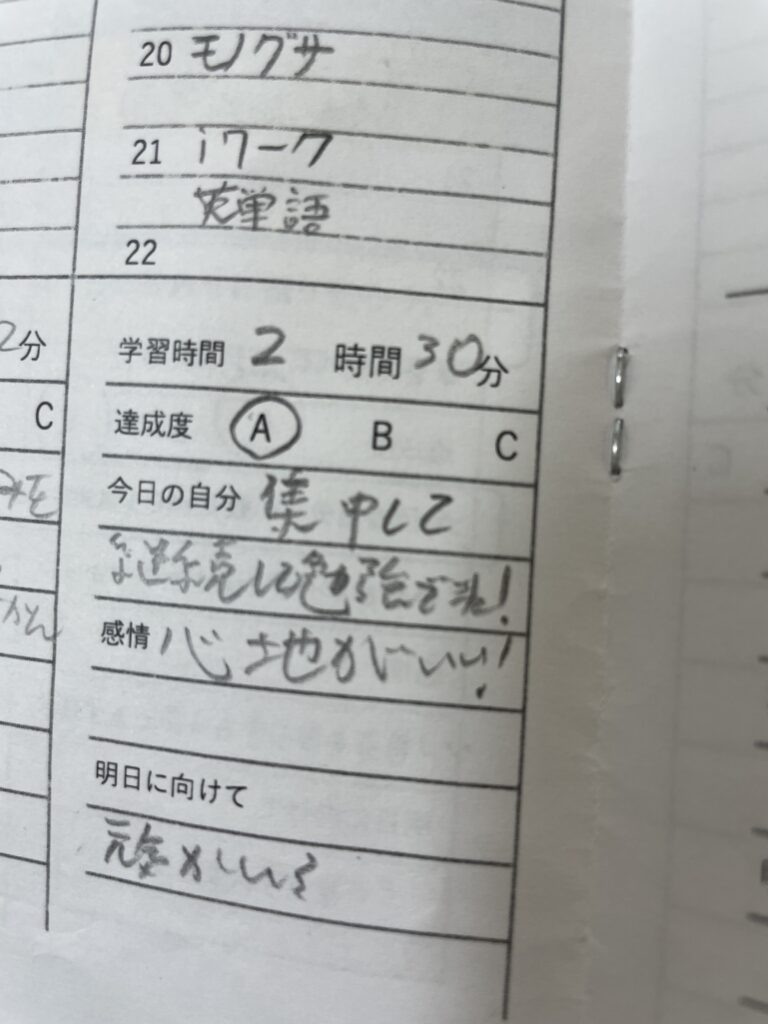 20 モノグサ
21 iワーク
英単語
22
2分
学習時間 2 時間 30分
C
達成度 A B C
今日の自分 集中して
継続して勉強できた!
感情 心地がいい!
明日に向けて